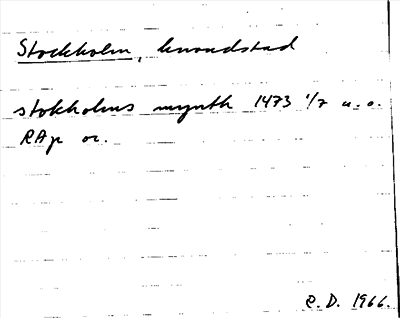 Stockholm, huvudstad
stokholms mynth 1473 1/7 u. o.
RAp or.
E. D. 1966.